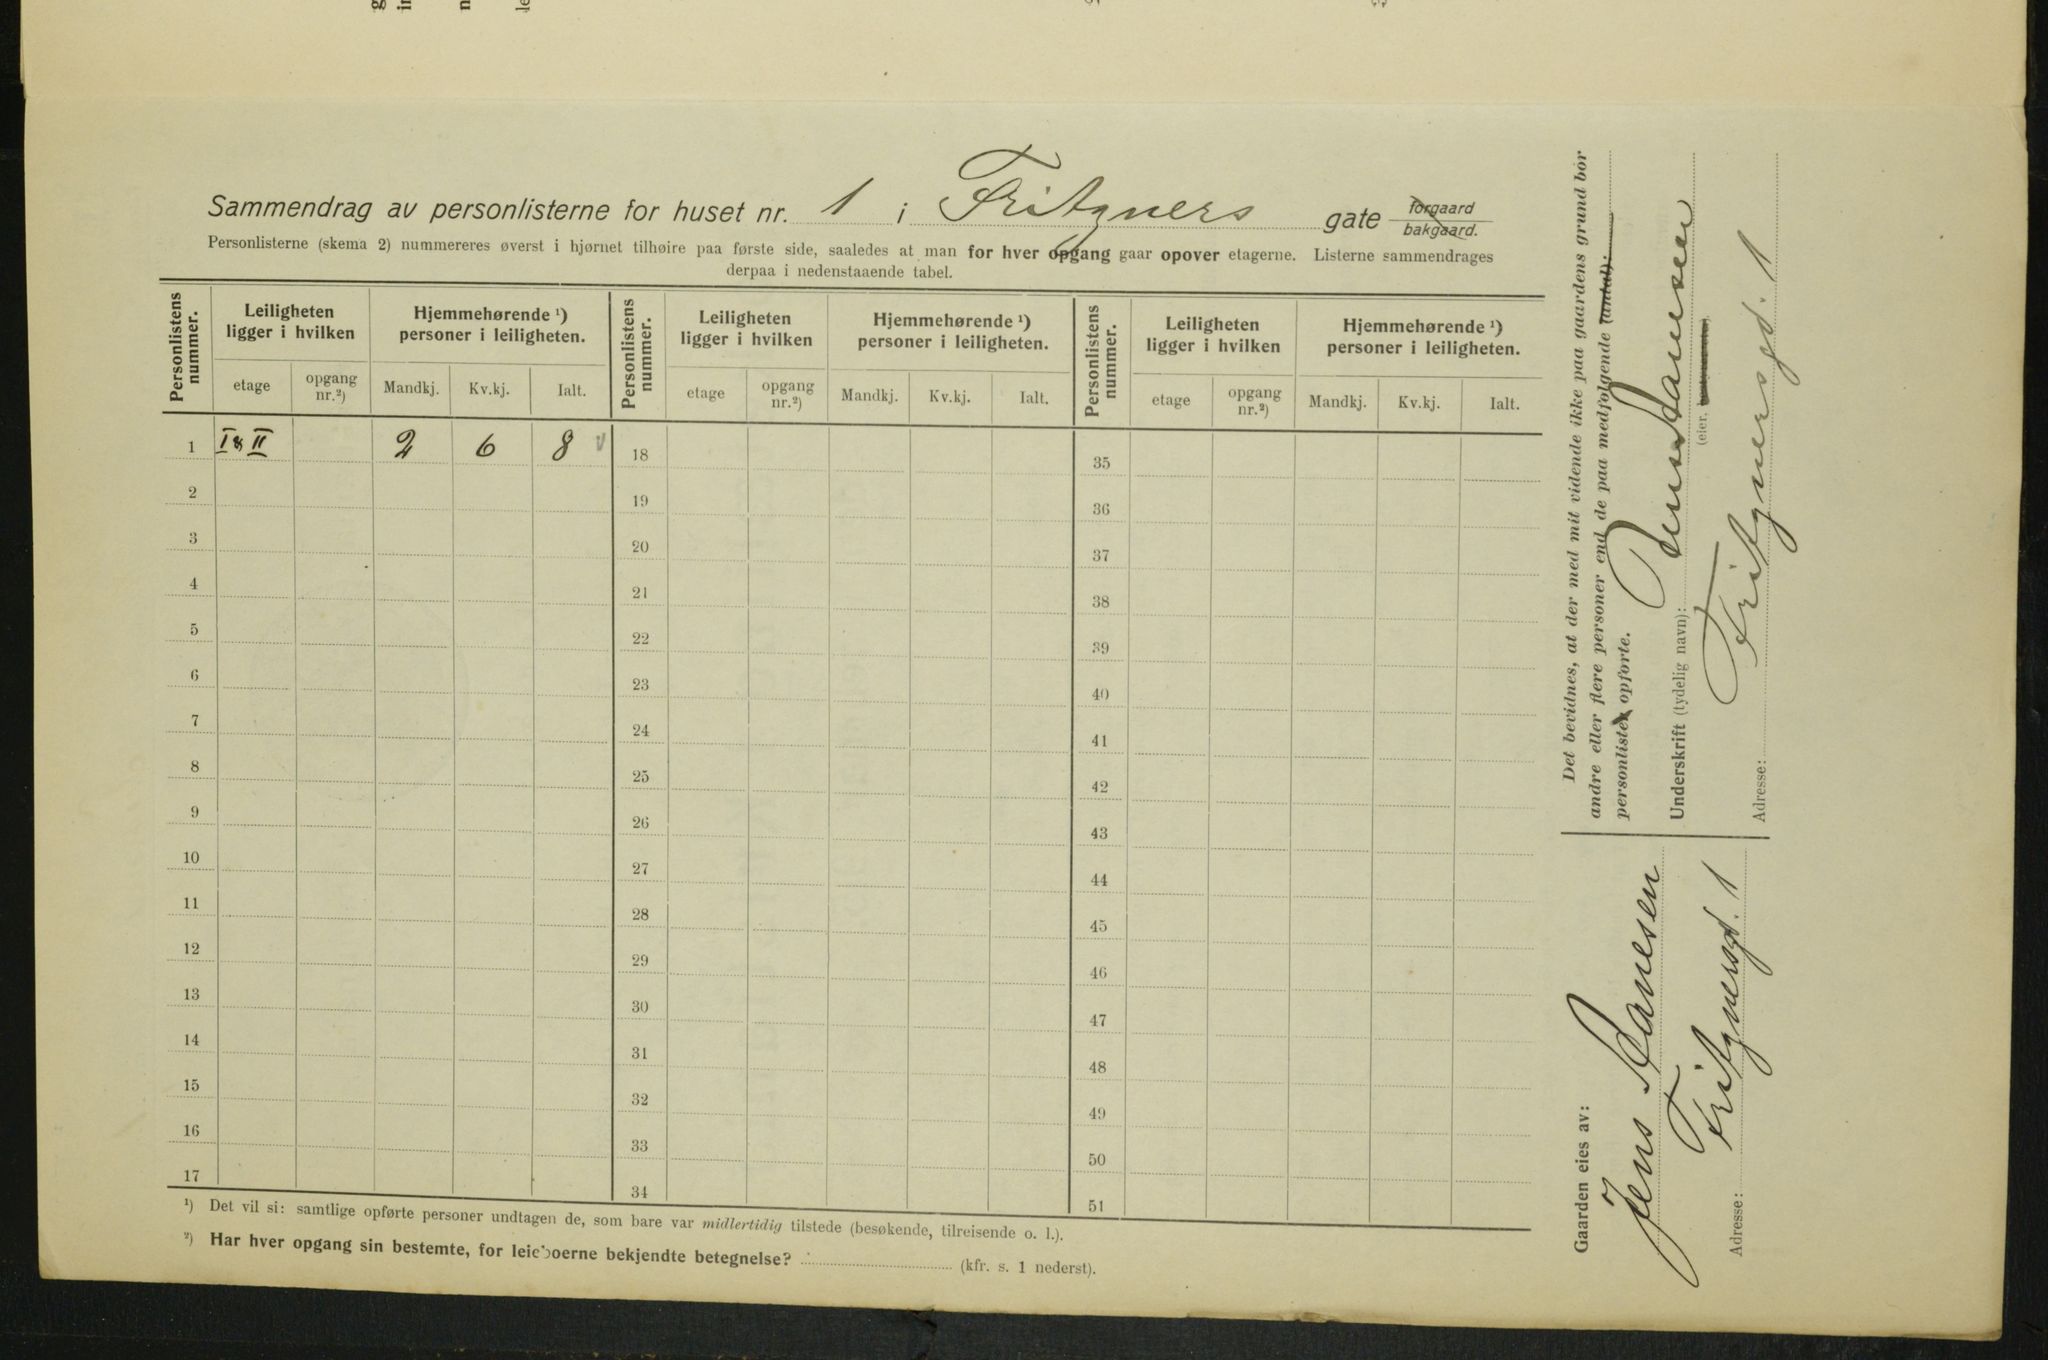 Sammendrag av personlisterne for huset nr. 1 i Fritzners gate forgaard bakgaard.
Personlisterne (skema 2) nummereres øverst i hjørnet tilhøire paa første side, saaledes at man for hver opgang gaar opover etagerne. Listerne sammendrages
derpaa i nedenstaaende tabel.
Personlistens nummer. Leiligheten ligger i hvilken Hjemmehørende ¹) personer i leiligheten. Personlistens nummer. Leiligheten ligger i hvilken Hjemmehørende ¹) personer i leiligheten. Personlistens nummer. Leiligheten ligger i hvilken Hjemmehørende ¹) personer i leiligheten.
etage opgang nr.²) Mandkj. Kv.kj. Ialt. etage opgang nr.²) Mandkj. Kv.kj. Ialt. etage opgang nr.²) Mandkj. Kv.kj. Ialt.
1 I & II 2 6 8 18 35
2 19 36
3 20 37
4 21 38
5 22 39
6 23 40
7 24 41
8 25 42
9 26 43
10 27 44
11 28 45
12 29 46
13 30 47
14 31 48
15 32 49
16 33 50
17 34 51
¹) Det vil si: samtlige opførte personer undtagen de, som bare var midlertidig tilstede (besøkende, tilreisende o. l.).
²) Har hver opgang sin bestemte, for leieboerne bekjendte betegnelse? (kfr. s. 1 nederst).
Det bevidnes, at der med mit vidende ikke paa gaardens grund bor
andre eller flere personer end de paa medfølgende (antal):
personlister opførte.
Underskrift (tydelig navn): Jens Hansen
(eier,
Adresse: Fritznersgt. 1
Gaarden eies av:
Jens Hansen
Adresse: Fritznersgt. 1